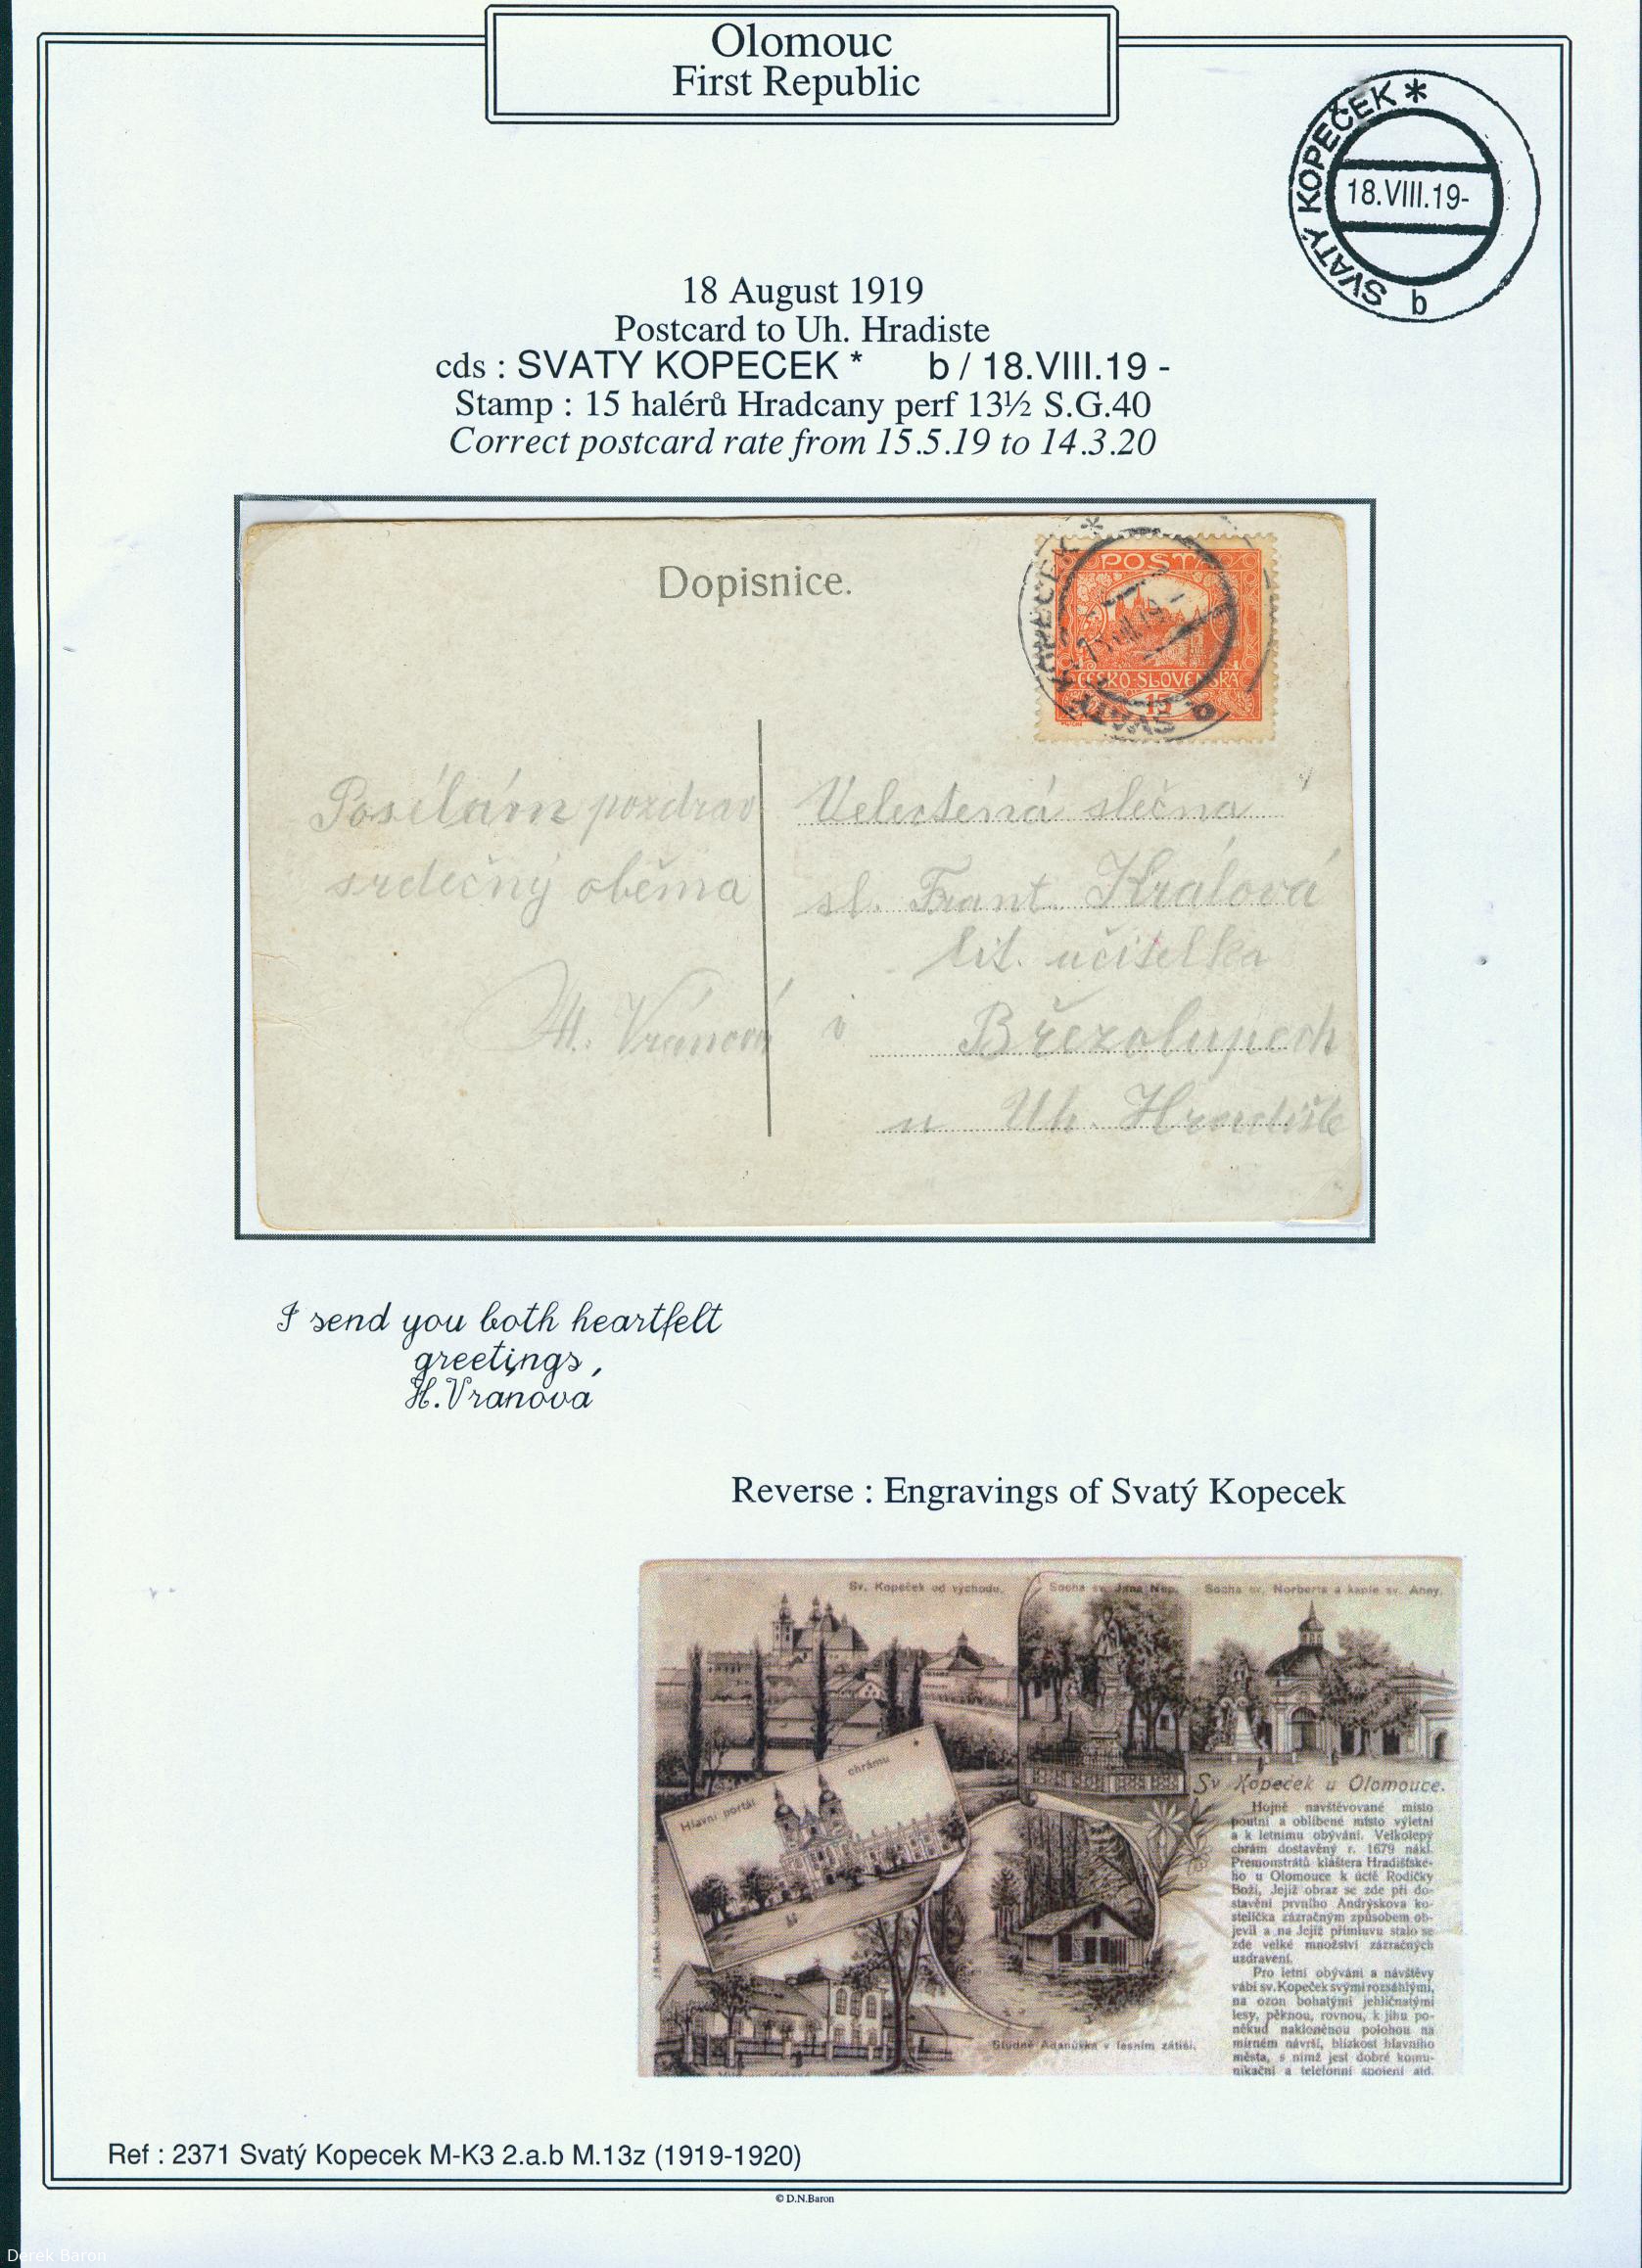 Olomouc
First Republic
SVATÝ KOPEČEK * b
18.VIII.19-
18 August 1919
Postcard to Uh. Hradiste
cds : SVATY KOPECEK * b / 18.VIII.19 -
Stamp : 15 halérů Hradcany perf 13½ S.G.40
Correct postcard rate from 15.5.19 to 14.3.20
Dopisnice.
POSTA
ČESKO-SLOVENSKÁ
15
SVATÝ KOPEČEK * b
Posílám pozdrav
srdečný oběma
Vránová
Velectená slečna
sl. Frant. Králová
lit. učitelka
v Březolupech
u Uh. Hradiště
I send you both heartfelt
greetings,
H. Vranova
Reverse : Engravings of Svatý Kopecek
Sv. Kopeček od východu.
Socha sv. Jana Nep.
Socha sv. Norberta a kaple sv. Anny.
Hlavní portál chrámu
Sv Kopeček u Olomouce.
Hojně navštěvované místo
poutní a oblíbené místo výletní
a k letnímu obývání. Velkolepý
chrám dostavěný r. 1679 nákl.
Premonstrátů kláštera Hradišťske-
ho u Olomouce k úctě Rodičky
Boží, Jejíž obraz se zde při do-
stavění prvního Andrýskova ko-
stelíčka zázračným způsobem ob-
jevil a na Její přímluvu stalo se
zde velké množství zázračných
uzdravení.
Pro letní obývání a návštěvy
vábí sv. Kopeček svými rozsáhlými,
na ozon bohatými jehličnatými
lesy, pěknou, rovnou, k jihu po-
někud nakloněnou polohou na
mírném návrší, blízkost hlavního
města, s nímž jest dobré komu-
nikační a telefonní spojení atd.
Studně Adanůvka v lesním zátiší.
Ref : 2371 Svatý Kopecek M-K3 2.a.b M.13z (1919-1920)
© D.N.Baron
Derek Baron